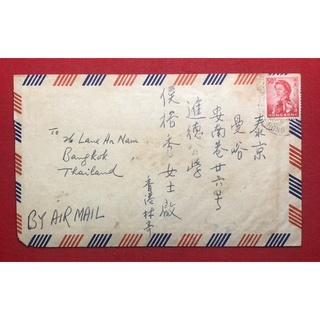 泰京
曼谷
安南巷廿六号
進德公學
侯格香女士啟
香港林寄
To
26 Lane An Nam
Bangkok
Thailand
BY AIR MAIL
HONG KONG